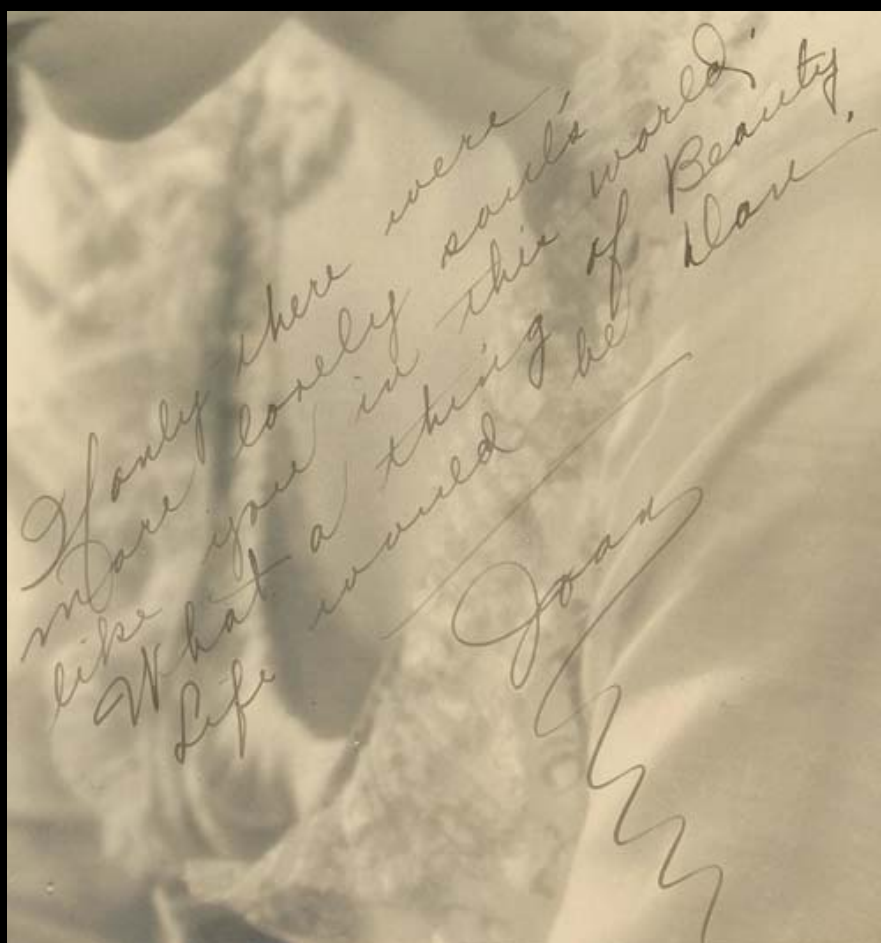 If only there were,
more lovely soul's
like you in this world;
What a thing of Beauty,
Life would be Dove
Joan